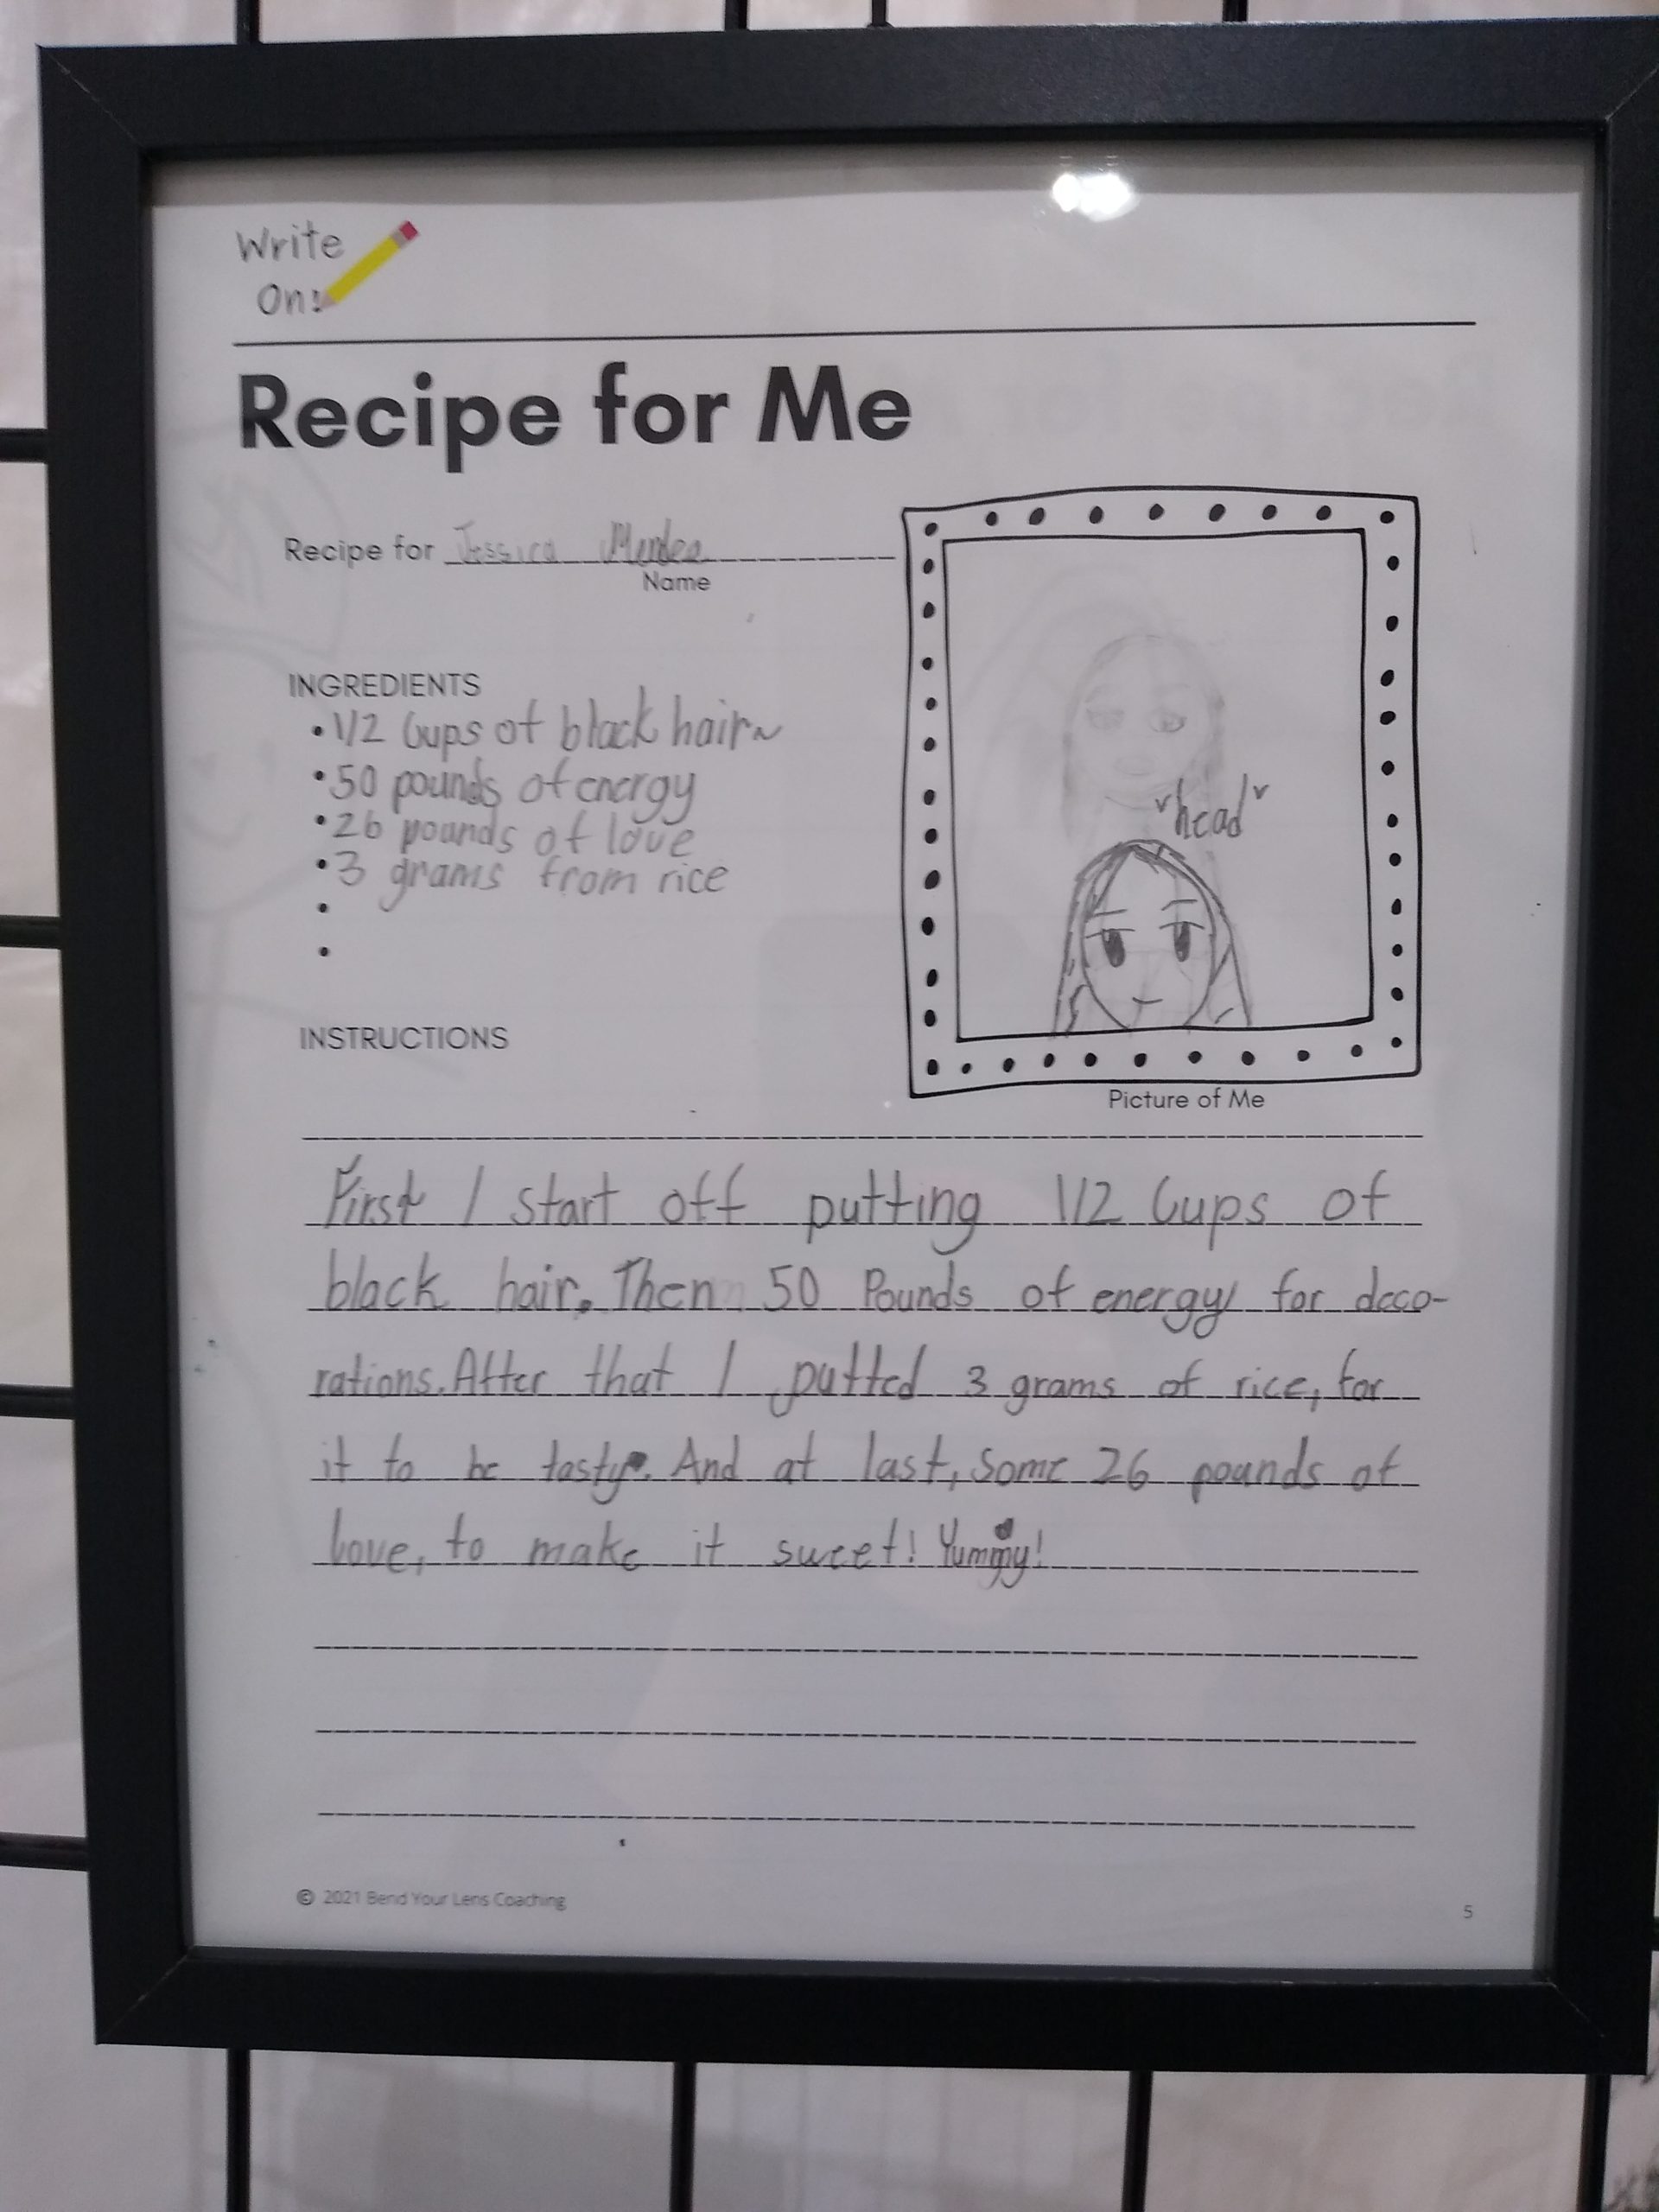 Write
On!
Recipe for Me
Recipe for Jessica
Name
INGREDIENTS
• 1/2 Cups of black hair~
• 50 pounds of energy
• 26 pounds of love
• 3 grams from rice
•
•
"head"
INSTRUCTIONS
Picture of Me
First I start off putting 1/2 Cups of
black hair. Then 50 Pounds of energy for deco-
rations. After that I putted 3 grams of rice, for
it to be tasty. And at last, Some 26 pounds of
love, to make it sweet! Yummy!
© 2021 Bend Your Lens Coaching
5